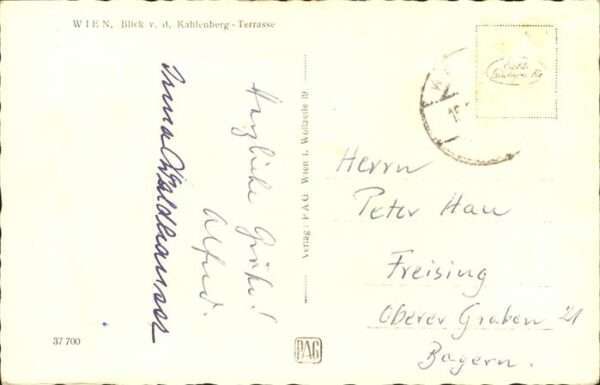 WIEN, Blick v. d. Kahlenberg-Terrasse
Herzliche Grüße!
Alfred.
Irma Waldhauser
Verlag: P.A.G. Wien I, Wollzeile 19
Herrn
Peter Hau
Freising
Oberer Graben 21
Bayern.
37 700
PAG